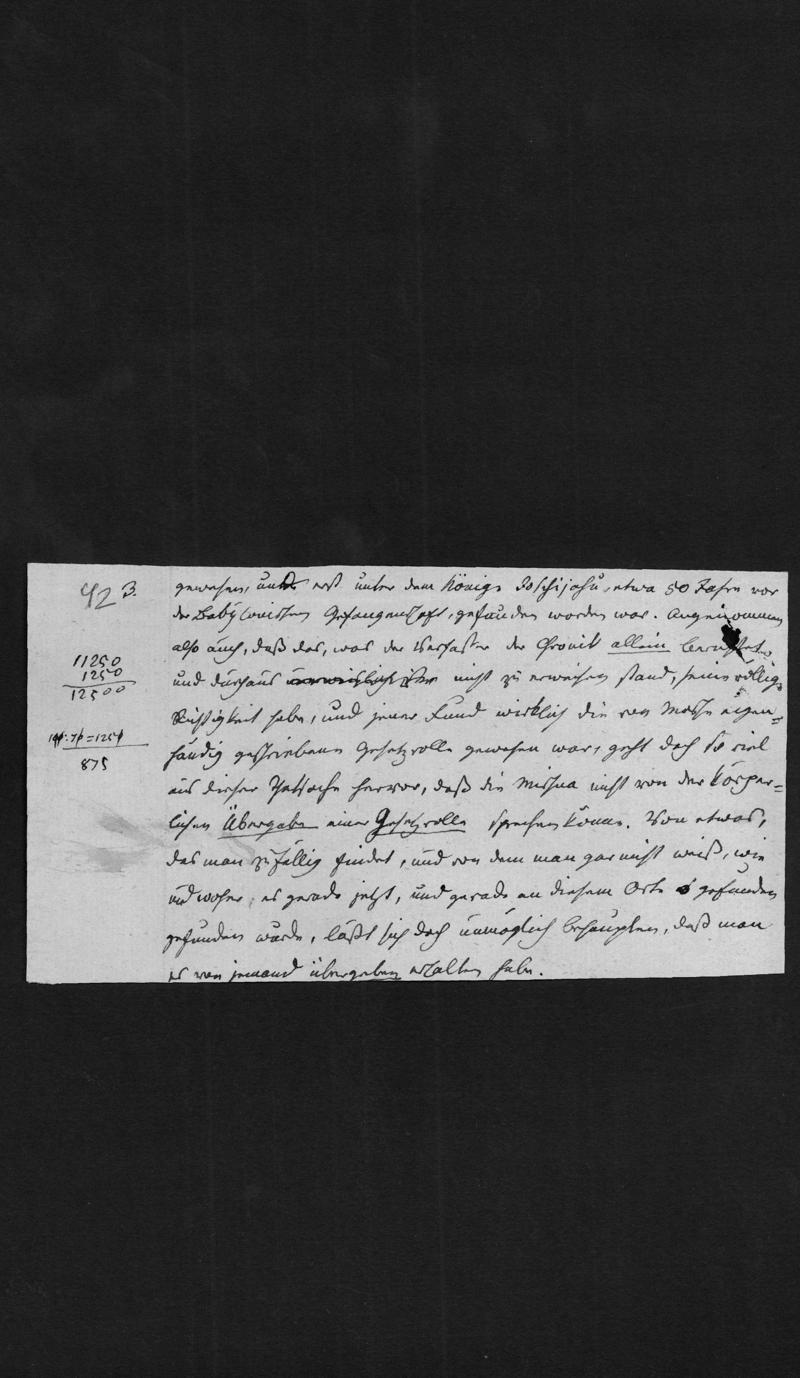 42 3.
gewesen, und erst unter dem Könige Joschijahu, etwa 50 Jahre vor
der Babylonischen Gefangenschaft, gefunden worden war. Angenommen
also auch, daß das, was der Verfasser der Chronik allein berichtet,
und durchaus nicht zu erweisen stand, seine völlige
Richtigkeit habe, und jener Fund wirklich die von Mosche eigen-
händig geschriebene Gesetzrolle gewesen war, geht doch so viel
aus dieser Thatsache hervor, daß die Mischna nicht von der körper-
lichen Übergabe einer Gesetzrolle sprechen könne. Von etwas,
das man zufällig findet, und von dem man gar nicht weiß, wie
und woher es gerade jetzt, und gerade an diesem Orte gefunden
gefunden wurde, läßt sich doch unmöglich behaupten, daß man
es von jemand übergeben erhalten habe.
11250
1250
12500
875